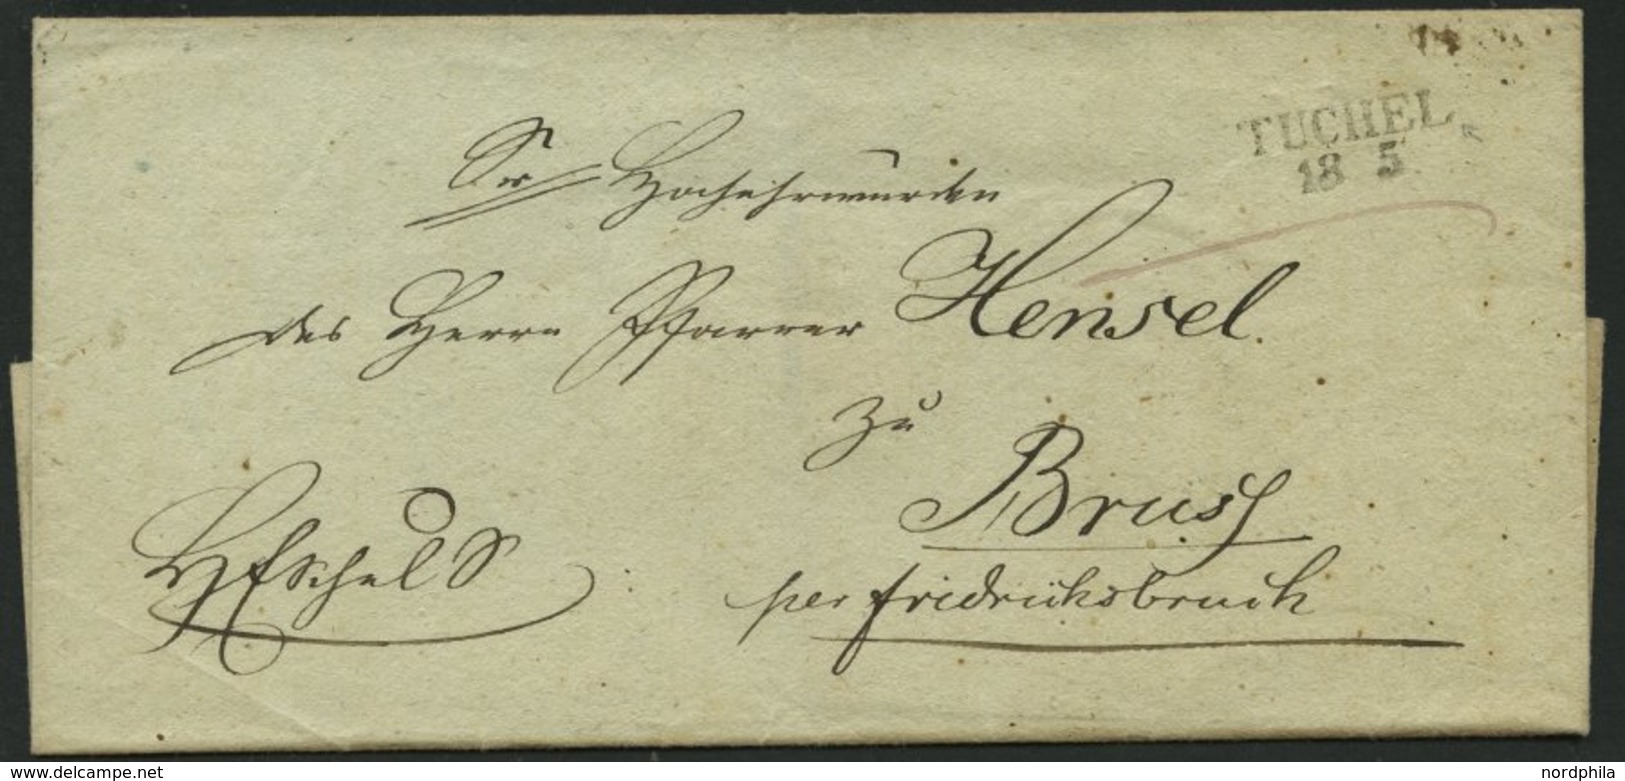 TUCHEL
18 5
Sr Hochehrwürden
des Herrn Pfarrer Hensel.
zu
Brusß
per fridrichsbruch
delcampe.net
nordphila